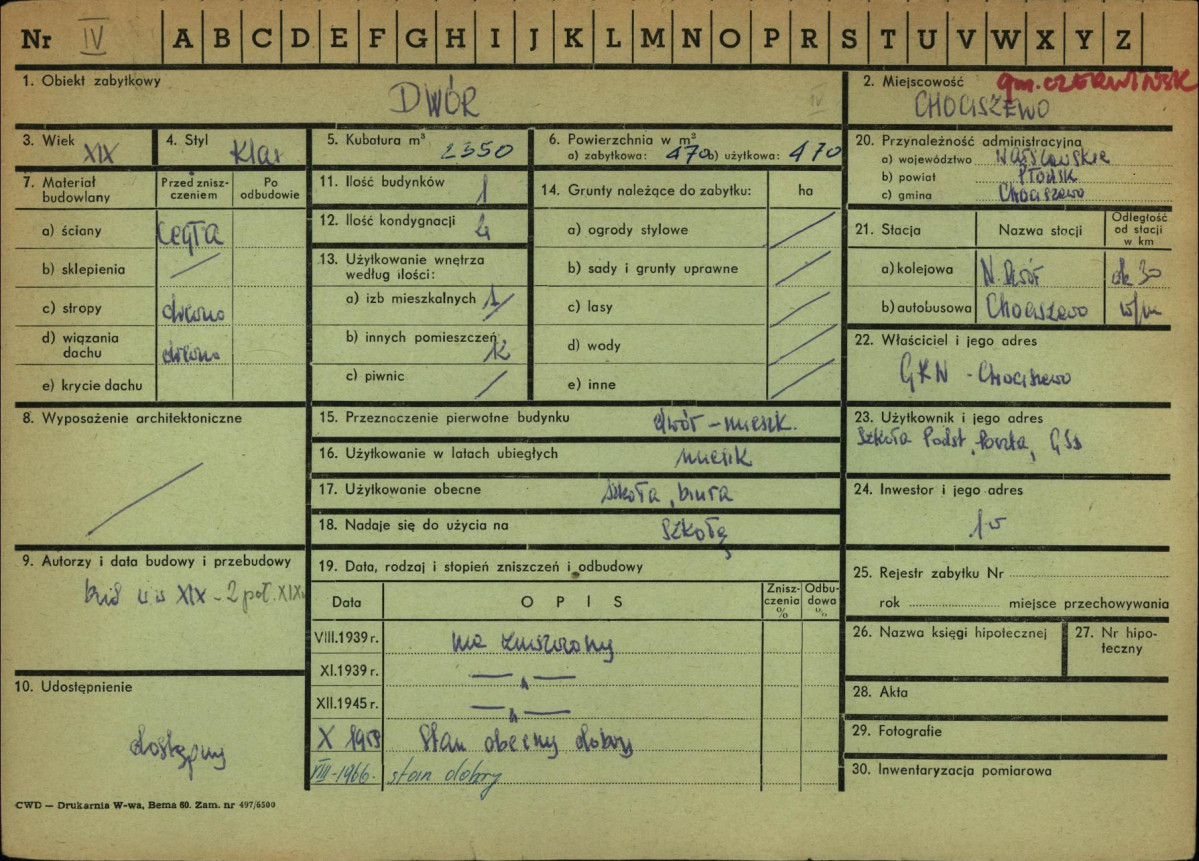 Nr IV A B C D E F G H I J K L M N O P R S T U V W X Y Z
1. Obiekt zabytkowy
DWÓR IV
2. Miejscowość gm. CZERWIŃSK
CHOCISZEWO
3. Wiek XIX
4. Styl Klas
5. Kubatura m³ 2350
6. Powierzchnia w m²
a) zabytkowa: 470 b) użytkowa: 470
20. Przynależność administracyjna
a) województwo Warszawskie
b) powiat Płońsk
c) gmina Chociszewo
7. Materiał budowlany
Przed znisz-
czeniem
Po
odbudowie
a) ściany cegła
b) sklepienia /
c) stropy drewno
d) wiązania
dachu drewno
e) krycie dachu
11. Ilość budynków 1
12. Ilość kondygnacji 2
13. Użytkowanie wnętrza
według ilości:
a) izb mieszkalnych
b) innych pomieszczeń 12
c) piwnic /
14. Grunty należące do zabytku: ha
a) ogrody stylowe /
b) sady i grunty uprawne /
c) lasy /
d) wody /
e) inne /
21. Stacja Nazwa stacji
Odległość
od stacji
w km
a) kolejowa N. Dwór ok 30
b) autobusowa Chociszewo w/m
22. Właściciel i jego adres
GRN - Chociszewo
8. Wyposażenie architektoniczne
/
15. Przeznaczenie pierwotne budynku dwór - mieszk.
16. Użytkowanie w latach ubiegłych mieszk
17. Użytkowanie obecne szkoła, biura
18. Nadaje się do użycia na szkołę
23. Użytkownik i jego adres
Szkoła Podst, Poczta, GSs
24. Inwestor i jego adres
9. Autorzy i data budowy i przebudowy
XIX - 2 poł. XIX w
10. Udostępnienie
dostępny
19. Data, rodzaj i stopień zniszczeń i odbudowy
Data OPIS
Znisz-
czenia
%
Odbu-
dowa
%
VIII.1939 r. nie zniszczony
XI.1939 r. — " —
XII.1945 r. — " —
X 1959 Stan obecny dobry
VIII-1966. stan dobry
25. Rejestr zabytku Nr
rok miejsce przechowywania
26. Nazwa księgi hipotecznej
27. Nr hipo-
teczny
28. Akta
29. Fotografie
30. Inwentaryzacja pomiarowa
CWD — Drukarnia W-wa, Bema 60. Zam. nr 497/6500